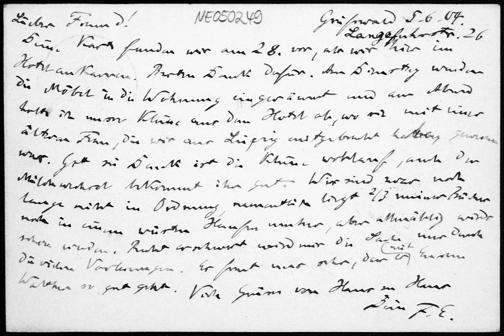 Lieber Freund! NE050249 Greifswald 5.6.04.
Langefuhrstr. 26
Deine Karte fanden wir am 28. vor, als wir hier im
Hotel ankamen. Besten Dank dafür. Am Dienstag wurden
die Möbel in die Wohnung eingeräumt und am Abend
holte ich unsere Kleine aus dem Hotel ab, wo sie mit einer
älteren Frau, die wir aus Leipzig mitgebracht haben, gewesen
war. Gott sei Dank ist die Kleine wohlauf, auch der
Milchwechsel bekommt ihr gut. Wir sind zwar noch
lange nicht in Ordnung namentlich liegt 2/3 meiner Bücher
noch in einem wüsten Haufen umher, aber allmählich wird's
schon werden. Recht erschwert wird mir die Sache nur durch
die vielen Vorlesungen. Es freut mich sehr, dass es (mit) Eurem
Walther so gut geht. Viele Grüsse von Haus zu Haus
Dein F. E.